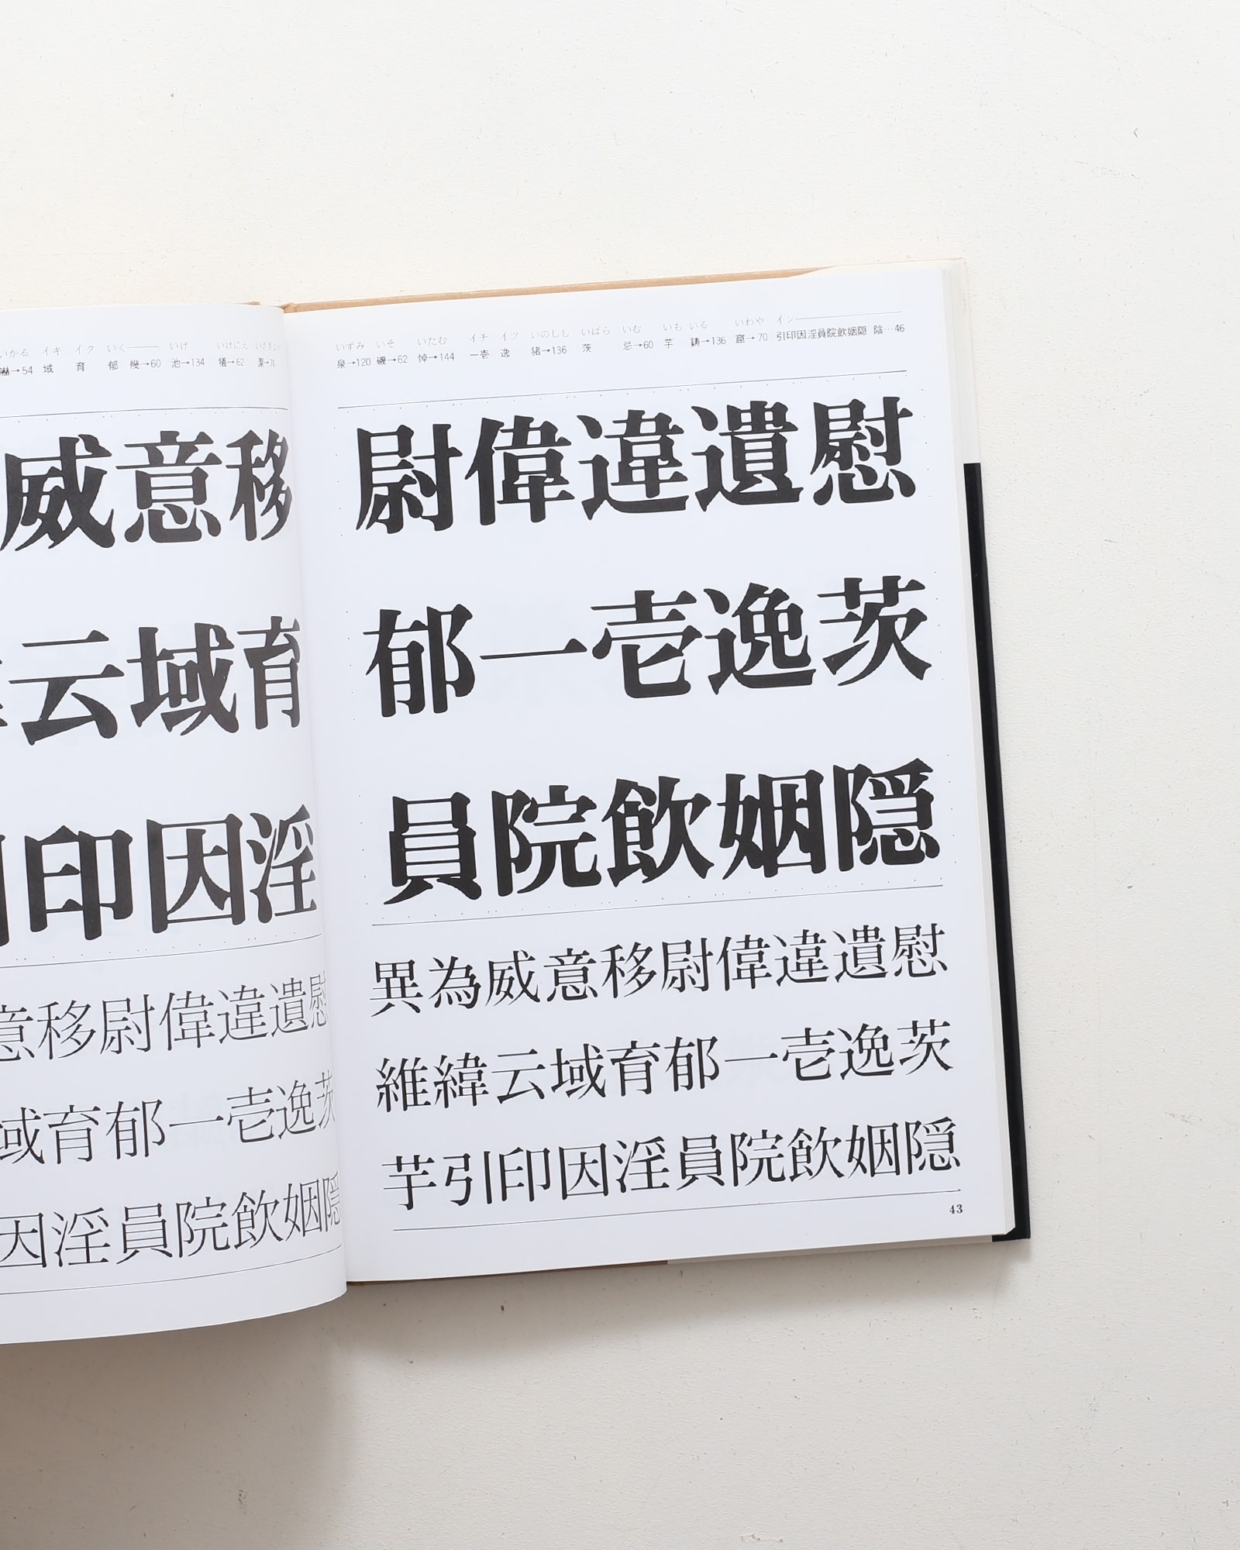 いかる イキ イク いく いけ いけにえ
→54 域 育 郁 幾→60 池→134 犠→62
威意移
云域育
印因淫
意移尉偉違遺慰
域育郁一壱逸茨
因淫員院飲姻隠
いずみ いそ いたむ イチ イツ いのしし いばら いむ いも いる いわや イン
泉→120 磯→62 悼→144 一壱 逸 猪→136 茨 忌→60 芋 鋳→136 窟→70 引印因淫員院飲姻隠 陰…46
尉偉違遺慰
郁一壱逸茨
員院飲姻隠
異為威意移尉偉違遺慰
維緯云域育郁一壱逸茨
芋引印因淫員院飲姻隠
43